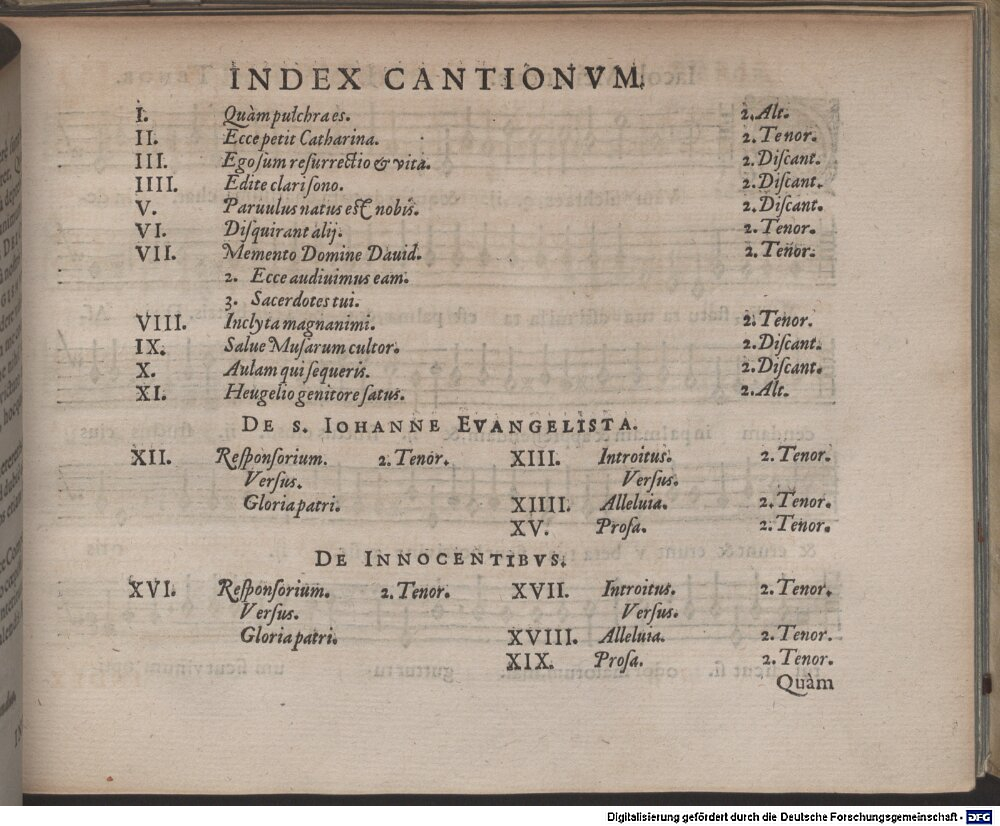 INDEX CANTIONVM.
I. Quàm pulchra es. 2. Alt.
II. Ecce petit Catharina. 2. Tenor.
III. Ego sum resurrectio & vita. 2. Discant.
IIII. Edite clarisono. 2. Discant.
V. Paruulus natus est nobis. 2. Discant.
VI. Disquirant alij. 2. Tenor.
VII. Memento Domine Dauid. 2. Tenor.
2. Ecce audiuimus eam.
3. Sacerdotes tui.
VIII. Inclyta magnanimi. 2. Tenor.
IX. Salue Musarum cultor. 2. Discant.
X. Aulam qui sequeris. 2. Discant.
XI. Heugelio genitore satus. 2. Alt.
DE S. IOHANNE EVANGELISTA.
XII. Responsorium. 2. Tenor. XIII. Introitus. 2. Tenor.
Versus. Versus.
Gloria patri. XIIII. Alleluia. 2. Tenor.
XV. Prosa. 2. Tenor.
DE INNOCENTIBVS.
XVI. Responsorium. 2. Tenor. XVII. Introitus. 2. Tenor.
Versus. Versus.
Gloria patri. XVIII. Alleluia. 2. Tenor.
XIX. Prosa. 2. Tenor.
Quàm
Digitalisierung gefördert durch die Deutsche Forschungsgemeinschaft - DFG